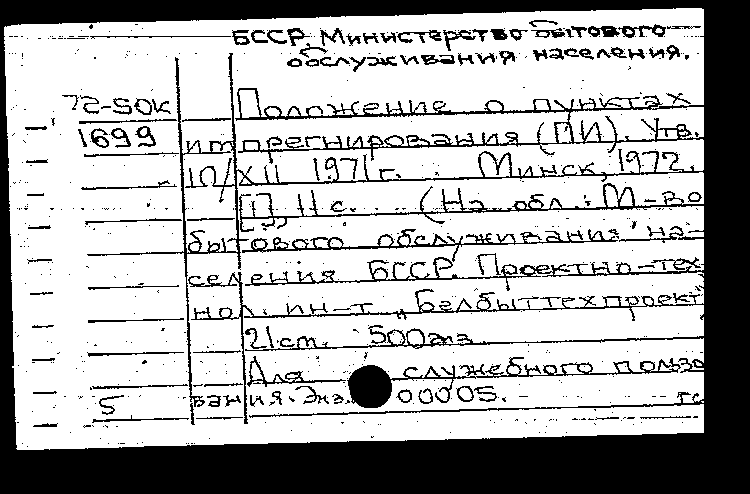 БССР. Министерство бытового
обслуживания населения.
72-50к Положение о пунктах
1699 импрегнирования (ПИ). Утв.
10/XII 1971г. Минск, 1972.
[1], 11 с. (На обл.: М-во
бытового обслуживания на-
селения БССР. Проектно-тех
нол. ин-т „Белбыттехпроект"
21см. 500экз.
Для служебного пользо
5 вания. Экз. 00005.